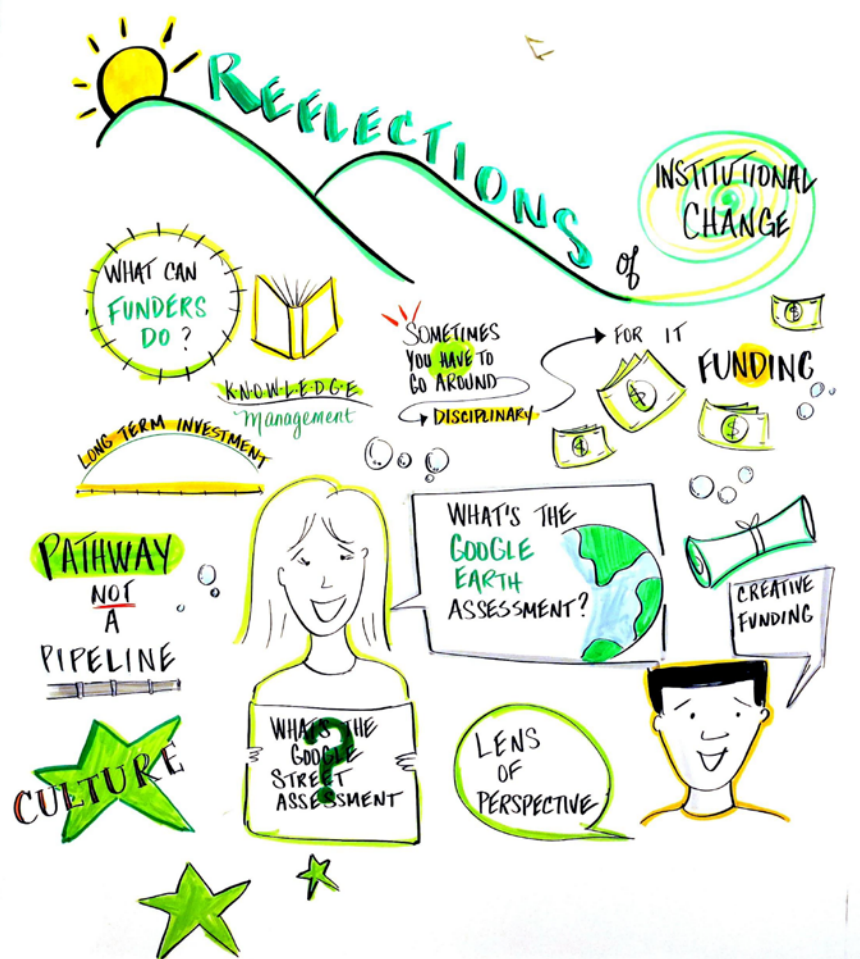 REFLECTIONS
of
INSTITUTIONAL
CHANGE
WHAT CAN
FUNDERS
DO?
K·N·O·W·L·E·D·G·E
Management
LONG TERM INVESTMENT
SOMETIMES
YOU HAVE TO
GO AROUND
DISCIPLINARY
FOR IT
FUNDING
$
$
$
$
PATHWAY
NOT
A
PIPELINE
WHAT'S THE
GOOGLE
EARTH
ASSESSMENT?
CREATIVE
FUNDING
CULTURE
?
WHAT'S THE
GOOGLE
STREET
ASSESSMENT
LENS
OF
PERSPECTIVE